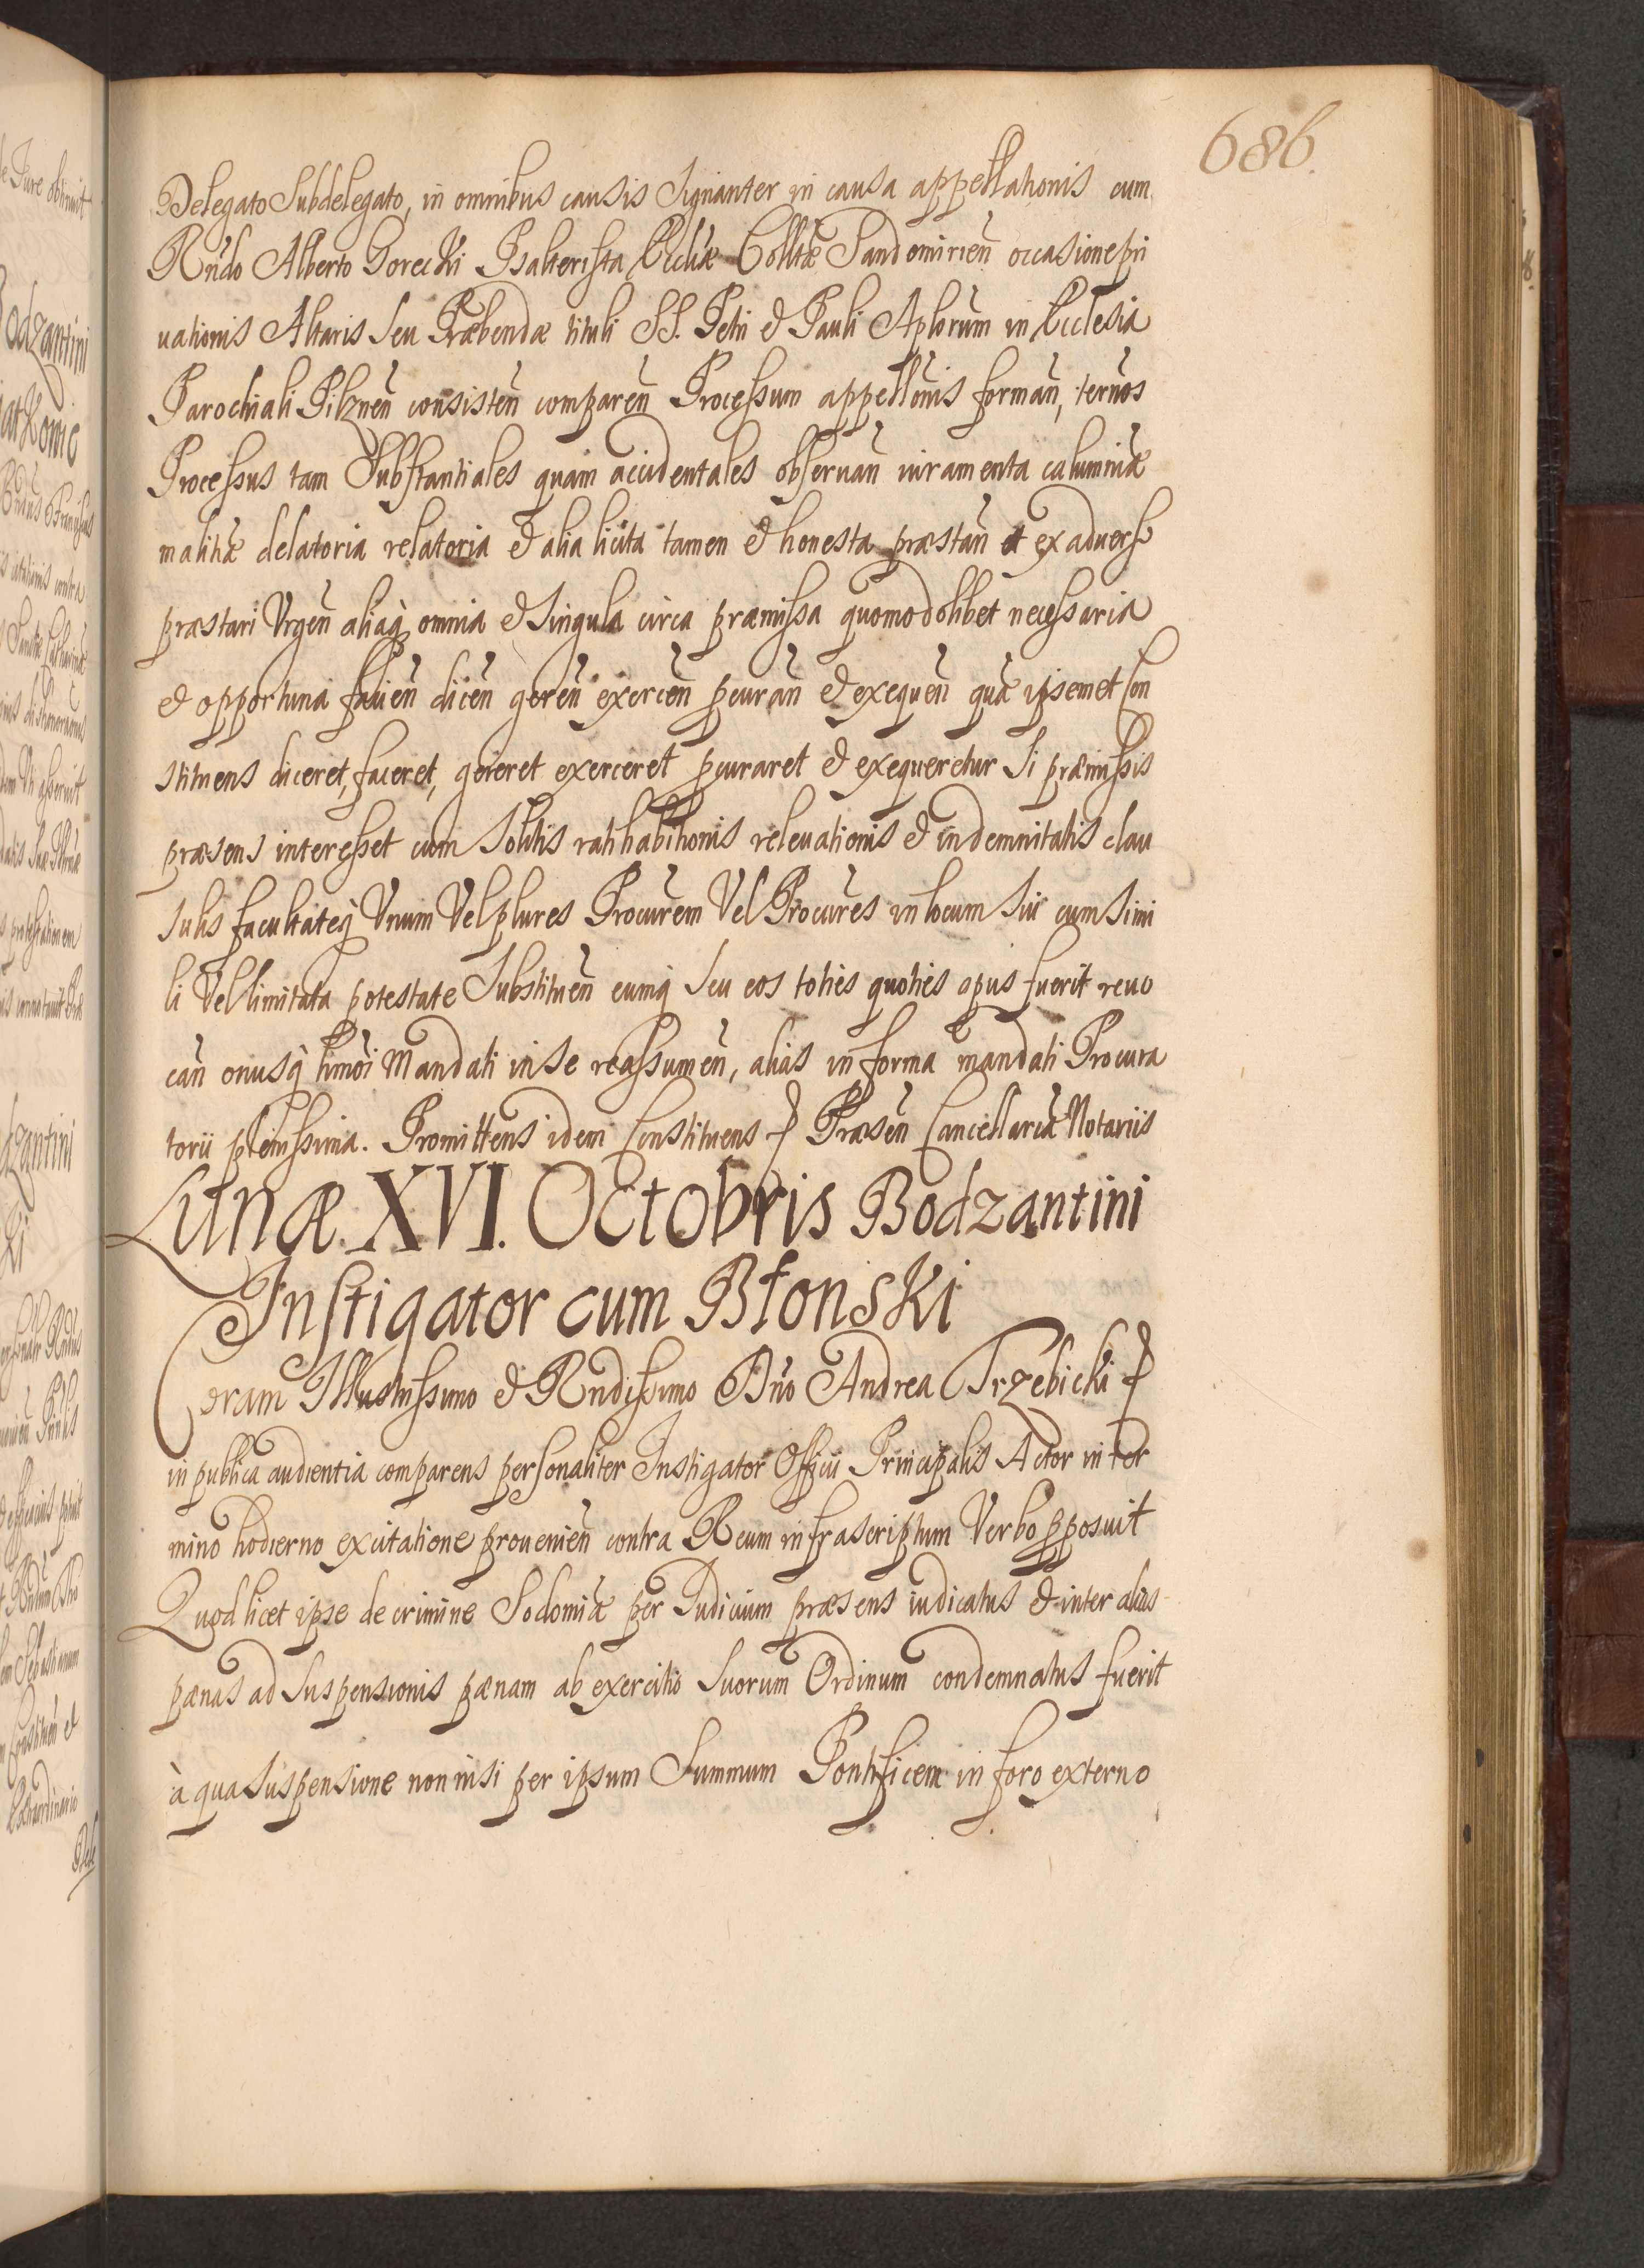 686.
Delegato Subdelegato, in omnibus causis Signanter in causa appellationis cum
Rndo Alberto Gorecki Psalterista Eccliæ Colltæ Sandomirien̄ occasione pri
uationis Altaris Seu Præbendæ tituli SS. Petri & Pauli Aplorum in Ecclesia
Parochiali Pilznen̄ consisten̄ comparen̄ Processum appellōnis forman̄, termos
Processus tam Substantiales quam accidentales obseruan̄ iuramenta calumniæ
malitiæ delatoria relatoria & alia licita tamen & honesta præstan̄ et ex aduerso
præstari Vrgen̄ aliaq̀ omnia & Singula circa præmissa quomodolibet necessaria
& opportuna facien̄ dicen̄ geren̄ exercen̄ pcuran̄ & exequen̄ quæ ipsemet Con
stituens diceret, faceret, gereret exerceret pcuraret & exequeretur Si præmissis
præsens interesset cum Solitis ratihabitionis releuationis & indemnitatis clau
sulis facultateq̀ Vnum Vel plures Procurem Vel Procures in locum Sui cum Simi
li Vel limitata potestate Substituen̄ eumq̀ Seu eos toties quoties opus fuerit reuo
can̄ onusq̀ hmōi Mandati in Se reassumen̄, alias in forma mandati Procura
torii plenissima. Promittens idem Constituens Præsen̄ Cancellariæ Notariis
Lunæ XVI. Octobris Bodzantini
Instigator cum Błonski
Coram Illustrissimo & Rndissimo Dn̄o Andrea Trzebicki
in publica audientia comparens personaliter Instigator Officii Principalis Actor in ter
mino hodierno ex citatione prouenien̄ contra Reum infrascriptum Verbo pposuit
Quod licet ipse de crimine Sodomiæ per Iudicium præsens iudicatus & inter alias
pænas ad Suspensionis pænam ab exercitio Suorum Ordinum condemnatus fuerit
à qua Suspensione non nisi per ipsum Summum Pontificem in foro externo